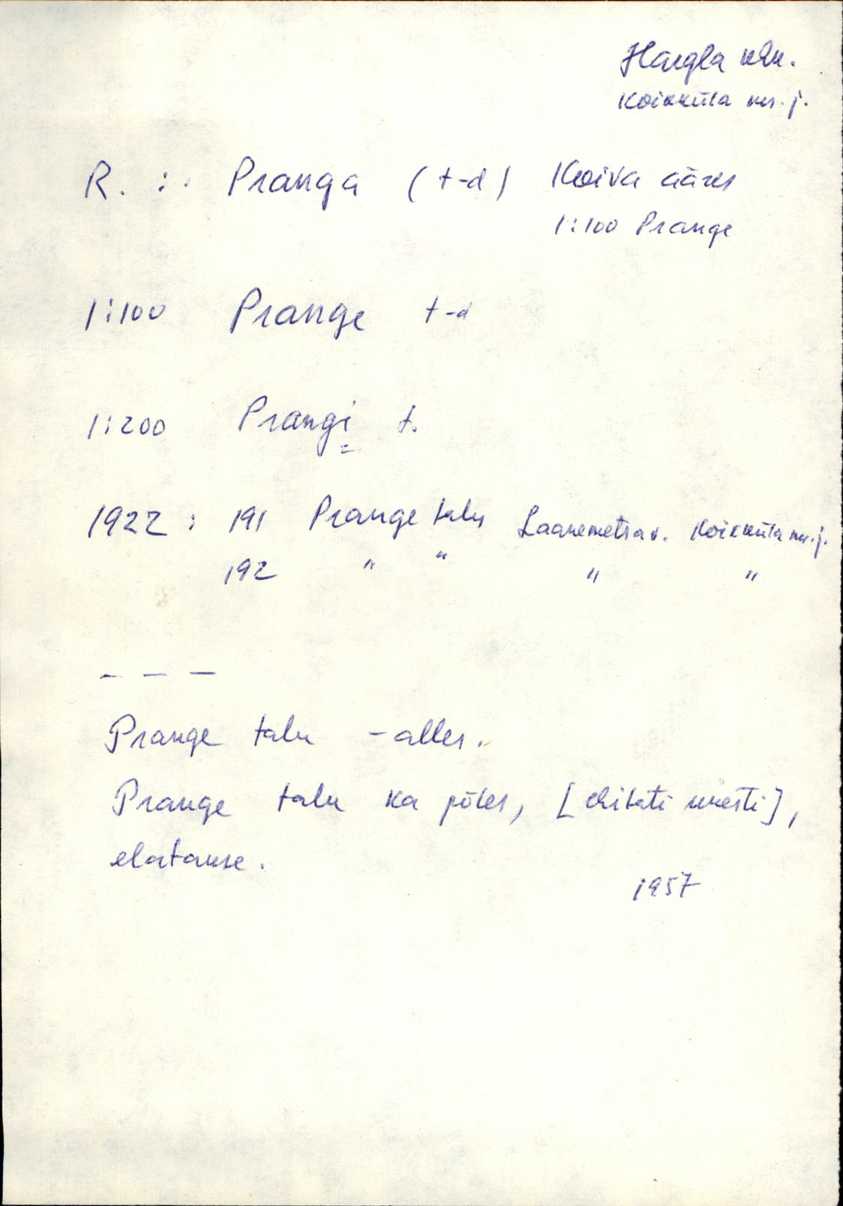 Hargla khk.
Koikküla ms. j.
R. : . Pranga (t-d) Koiva ääres
1:100 Prange
1:100 Prange t-d
1:200 Prangi t.
1922 : 191 Prange talu Laanemetsa v. Koikküla ms. j.
192 " " " "
— — —
Prange talu - alles.
Prange talu ka põles, [ehitati uuesti],
elatakse.
1957